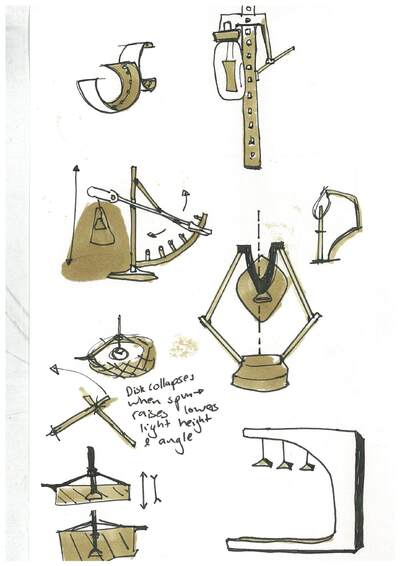 Disk collapses
when spun →
raises lowers
light height
& angle